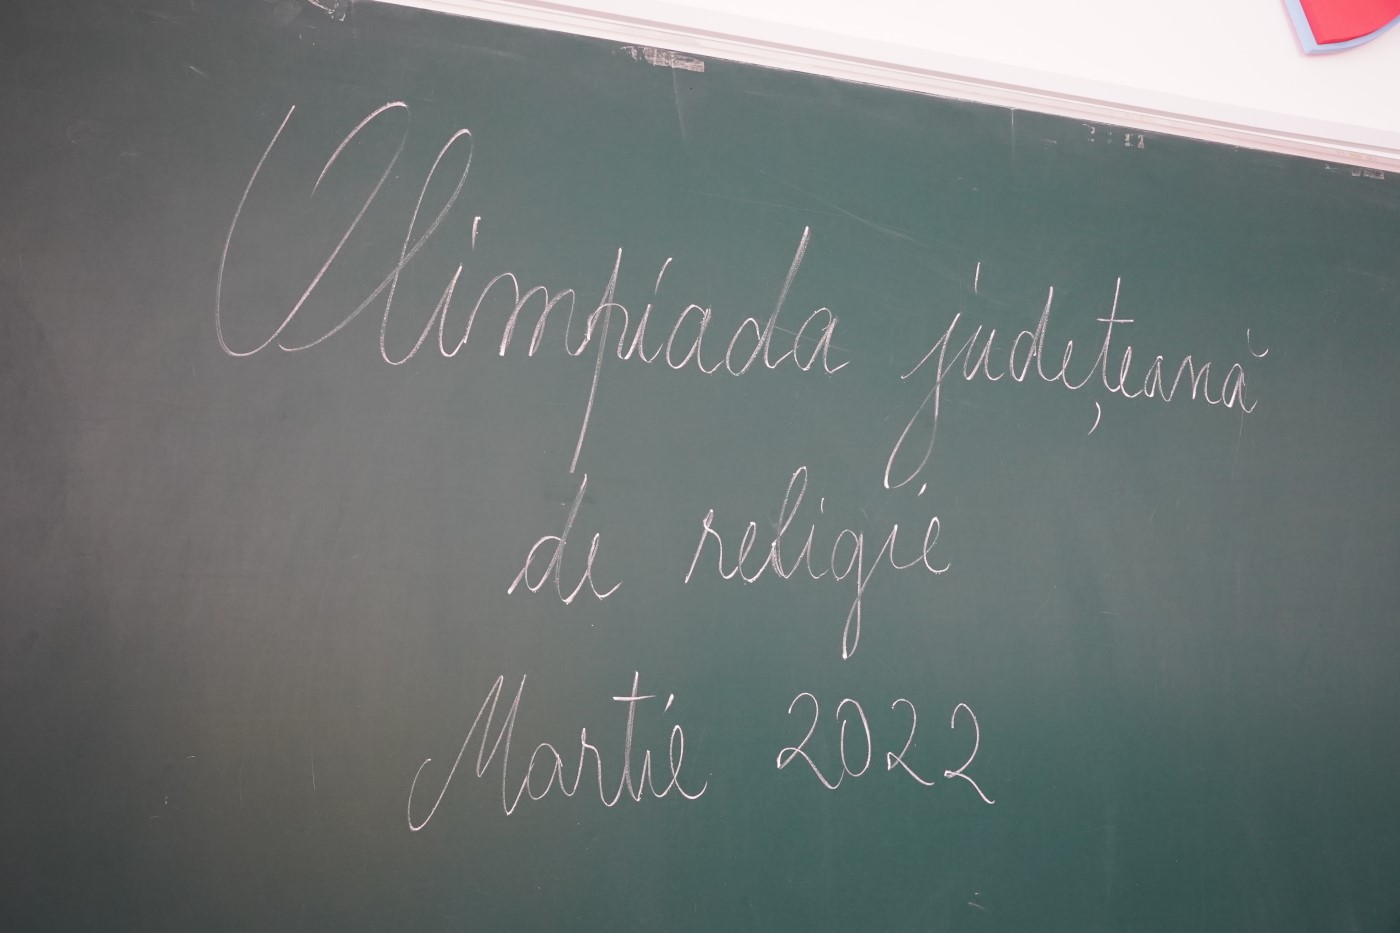 Olimpiada județeană
de religie
Martie 2022